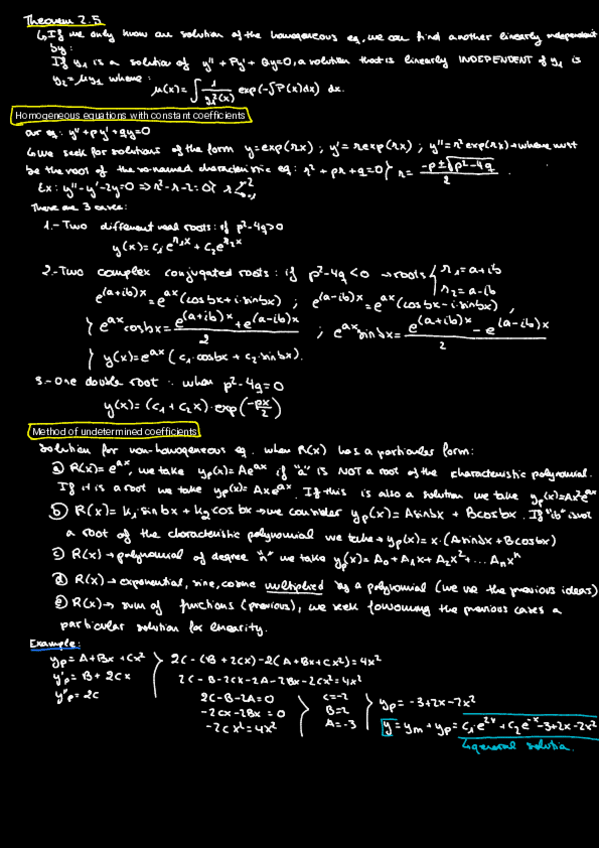 Theorem 2.5
↳ If we only know one solution of the homogeneous eq, we can find another linearly independent
by:
If y₁ is a solution of y''+Py'+Qy=0, a solution that is linearly INDEPENDENT of y₁ is
y₂=μy₁ where:
μ(x)= ∫ 1/y₁²(x) exp(-∫P(x)dx) dx.
Homogeneous equations with constant coefficients
our eq: y''+py'+qy=0
↳ we seek for solutions of the form y=exp(rx); y'=rexp(rx); y''=r²exp(rx) → where r must
be the root of the so-named characteristic eq: r²+pr+q=0 } r= (-p±√(p²-4q))/2.
Ex: y''-y'-2y=0 => r²-r-2=0 r <
There are 3 cases:
1.- Two different real roots: if p²-4q>0
y(x)=c₁e^(r₁x)+c₂e^(r₂x)
2.- Two complex conjugated roots: if p²-4q<0 → roots { r₁=a+ib
r₂=a-ib
e^((a+ib)x)=e^(ax)(cosbx+i·sinbx); e^((a-ib)x)=e^(ax)(cosbx-i·sinbx),
} e^(ax)cosbx= (e^((a+ib)x)+e^((a-ib)x))/2 ; e^(ax)sinbx= (e^((a+ib)x)-e^((a-ib)x))/2
} y(x)=e^(ax)(c₁·cosbx+c₂·sinbx).
3.- One double root : when p²-4q=0
y(x)=(c₁+c₂x)·exp(-px/2)
Method of undetermined coefficients
Solution for non-homogeneous eq. when R(x) has a particular form:
ⓐ R(x)=e^(ax), we take yp(x)=Ae^(ax) if "a" is NOT a root of the characteristic polynomial.
If it is a root we take yp(x)=Axe^(ax). If this is also a solution we take yp(x)=Ax²e^(ax)
ⓑ R(x)=k₁·sinbx+k₂cosbx → we consider yp(x)=Asinbx+Bcosbx. If "ib" is not
a root of the characteristic polynomial we take → yp(x)=x·(Asinbx+Bcosbx)
ⓒ R(x) → polynomial of degree "n" we take yp(x)=A₀+A₁x+A₂x²+...Anxⁿ
ⓓ R(x) → exponential, sine, cosine multiplied by a polynomial (we use the previous ideas)
ⓔ R(x) → sum of functions (previous), we seek following the previous cases a
particular solution for linearity.
Example:
yp=A+Bx+Cx² } 2C-(B+2Cx)-2(A+Bx+Cx²)=4x²
y'p=B+2Cx 2C-B-2Cx-2A-2Bx-2Cx²=4x²
y''p=2C 2C-B-2A=0 C=-2 yp=-3+2x-2x²
-2Cx-2Bx=0 B=2
-2Cx²=4x² A=-3 y=ym+yp=c₁·e^(2x)+c₂e^(-x)-3+2x-2x²
↳ general solution.